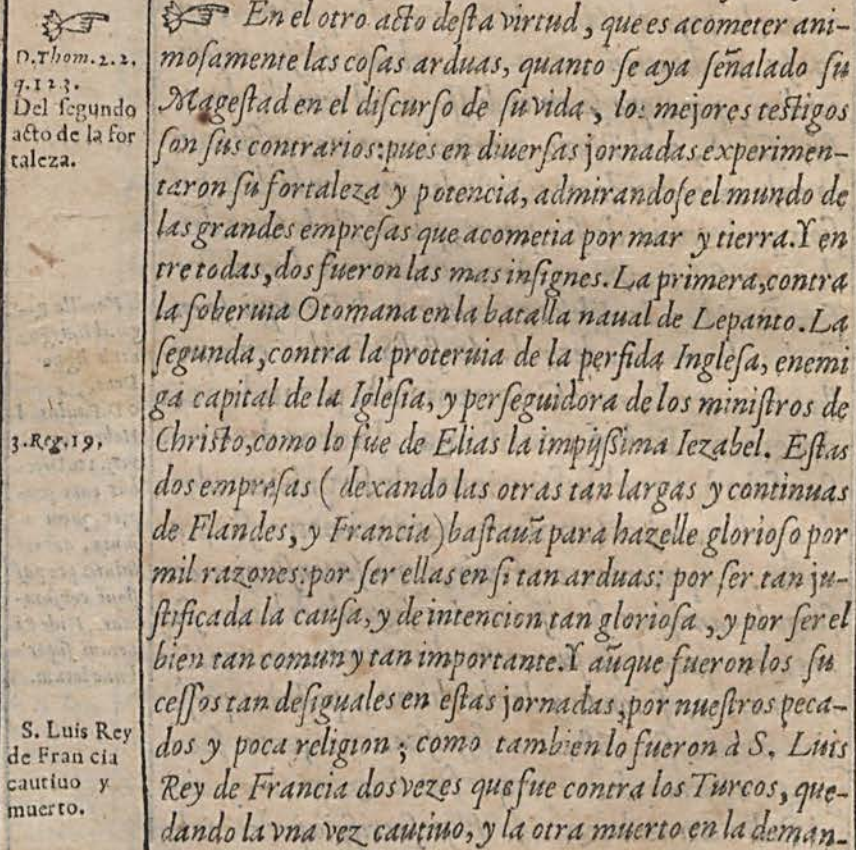 ☞
D.Thom.2.2.
q.123.
Del segundo
acto de la for
taleza.
3.Reg.19.
S. Luis Rey
de Fran cia
cautiuo y
muerto.
☞ En el otro acto desta virtud, que es acometer ani-
mosamente las cosas arduas, quanto se aya señalado su
Magestad en el discurso de su vida, los mejores testigos
son sus contrarios: pues en diuersas jornadas experimen-
taron su fortaleza y potencia, admirandose el mundo de
las grandes empresas que acometia por mar y tierra. Y en
tre todas, dos fueron las mas insignes. La primera, contra
la soberuia Otomana en la batalla naual de Lepanto. La
segunda, contra la proteruia de la perfida Inglesa, enemi
ga capital de la Iglesia, y perseguidora de los ministros de
Christo, como lo fue de Elias la impijssima Iezabel. Estas
dos empresas (dexando las otras tan largas y continuas
de Flandes, y Francia) bastauã para hazelle glorioso por
mil razones: por ser ellas en si tan arduas: por ser tan ju-
stificada la causa, y de intencion tan gloriosa, y por ser el
bien tan comun y tan importante. Y aũque fueron los su
cessos tan desiguales en estas jornadas, por nuestros peca-
dos y poca religion; como tambien lo fueron à S. Luis
Rey de Francia dos vezes que fue contra los Turcos, que-
dando la vna vez cautiuo, y la otra muerto en la deman-